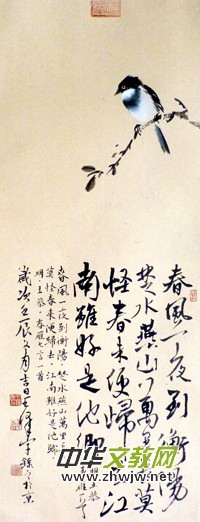 春風一夜到衡陽
楚水燕山萬里長莫
怪春来便歸去江
南雖好是他鄉
春風一夜到衡陽,楚水燕山萬里長
莫怪春来便歸去,江南雖好是他鄉
明·王恭·春雁七言一首
歲次壬辰 月吉日 於京
中华文教网
www.zhwjw